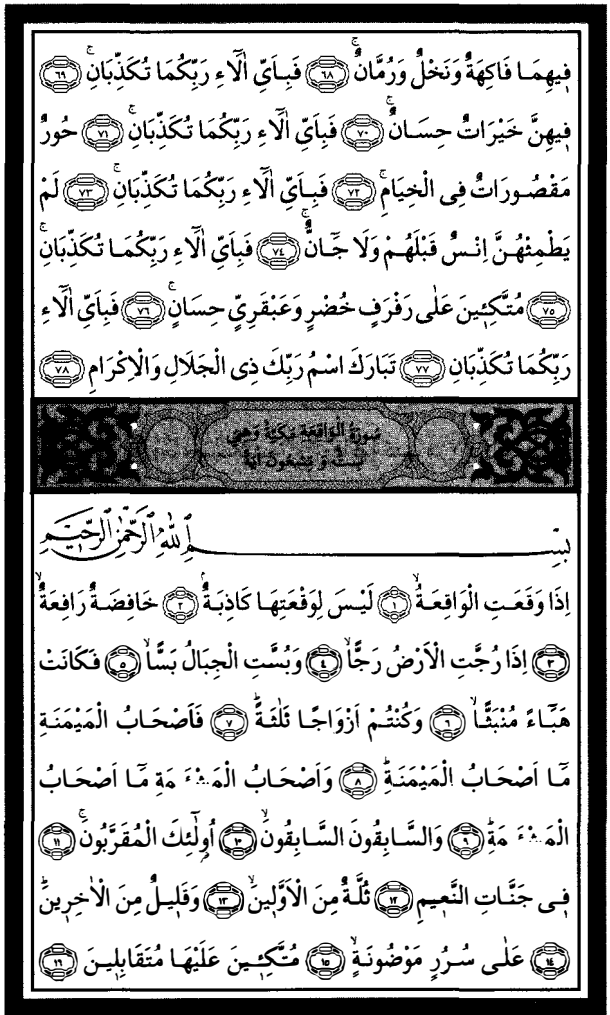 فِيهِمَا فَاكِهَةٌ وَنَخْلٌ وَرُمَّانٌۚ ﴿٦٨﴾ فَبِاَيِّ اٰلَٓاءِ رَبِّكُمَا تُكَذِّبَانِۚ ﴿٦٩﴾
فِيهِنَّ خَيْرَاتٌ حِسَانٌۚ ﴿٧٠﴾ فَبِاَيِّ اٰلَٓاءِ رَبِّكُمَا تُكَذِّبَانِۚ ﴿٧١﴾ حُورٌ
مَقْصُورَاتٌ فِى الْخِيَامِۚ ﴿٧٢﴾ فَبِاَيِّ اٰلَٓاءِ رَبِّكُمَا تُكَذِّبَانِۚ ﴿٧٣﴾ لَمْ
يَطْمِثْهُنَّ اِنْسٌ قَبْلَهُمْ وَلَا جَٓانٌّۚ ﴿٧٤﴾ فَبِاَيِّ اٰلَٓاءِ رَبِّكُمَا تُكَذِّبَانِۚ
﴿٧٥﴾ مُتَّكِـِٔينَ عَلٰى رَفْرَفٍ خُضْرٍ وَعَبْقَرِيٍّ حِسَانٍۚ ﴿٧٦﴾ فَبِاَيِّ اٰلَٓاءِ
رَبِّكُمَا تُكَذِّبَانِ ﴿٧٧﴾ تَبَارَكَ اسْمُ رَبِّكَ ذِى الْجَلَالِ وَالْاِكْرَامِ ﴿٧٨﴾
سُورَةُ الْوَاقِعَةِ مَكِّيَّةٌ وَهِيَ
سِتٌّ وَتِسْعُونَ اٰيَةً
بِسْمِ اللّٰهِ الرَّحْمٰنِ الرَّحِيمِ
اِذَا وَقَعَتِ الْوَاقِعَةُۙ ﴿١﴾ لَيْسَ لِوَقْعَتِهَا كَاذِبَةٌۢ ﴿٢﴾ خَافِضَةٌ رَافِعَةٌۙ
﴿٣﴾ اِذَا رُجَّتِ الْاَرْضُ رَجًّاۙ ﴿٤﴾ وَبُسَّتِ الْجِبَالُ بَسًّاۙ ﴿٥﴾ فَكَانَتْ
هَبَٓاءً مُنْبَثًّاۙ ﴿٦﴾ وَكُنْتُمْ اَزْوَاجًا ثَلٰثَةًۜ ﴿٧﴾ فَاَصْحَابُ الْمَيْمَنَةِ
مَٓا اَصْحَابُ الْمَيْمَنَةِۜ ﴿٨﴾ وَاَصْحَابُ الْمَشْـَٔمَةِ مَٓا اَصْحَابُ
الْمَشْـَٔمَةِۜ ﴿٩﴾ وَالسَّابِقُونَ السَّابِقُونَۙ ﴿١٠﴾ اُو۬لٰٓئِكَ الْمُقَرَّبُونَۚ ﴿١١﴾
فِي جَنَّاتِ النَّعِيمِ ﴿١٢﴾ ثُلَّةٌ مِنَ الْاَوَّلِينَۙ ﴿١٣﴾ وَقَلِيلٌ مِنَ الْاٰخِرِينَۜ
﴿١٤﴾ عَلٰى سُرُرٍ مَوْضُونَةٍۙ ﴿١٥﴾ مُتَّكِـِٔينَ عَلَيْهَا مُتَقَابِلِينَ ﴿١٦﴾